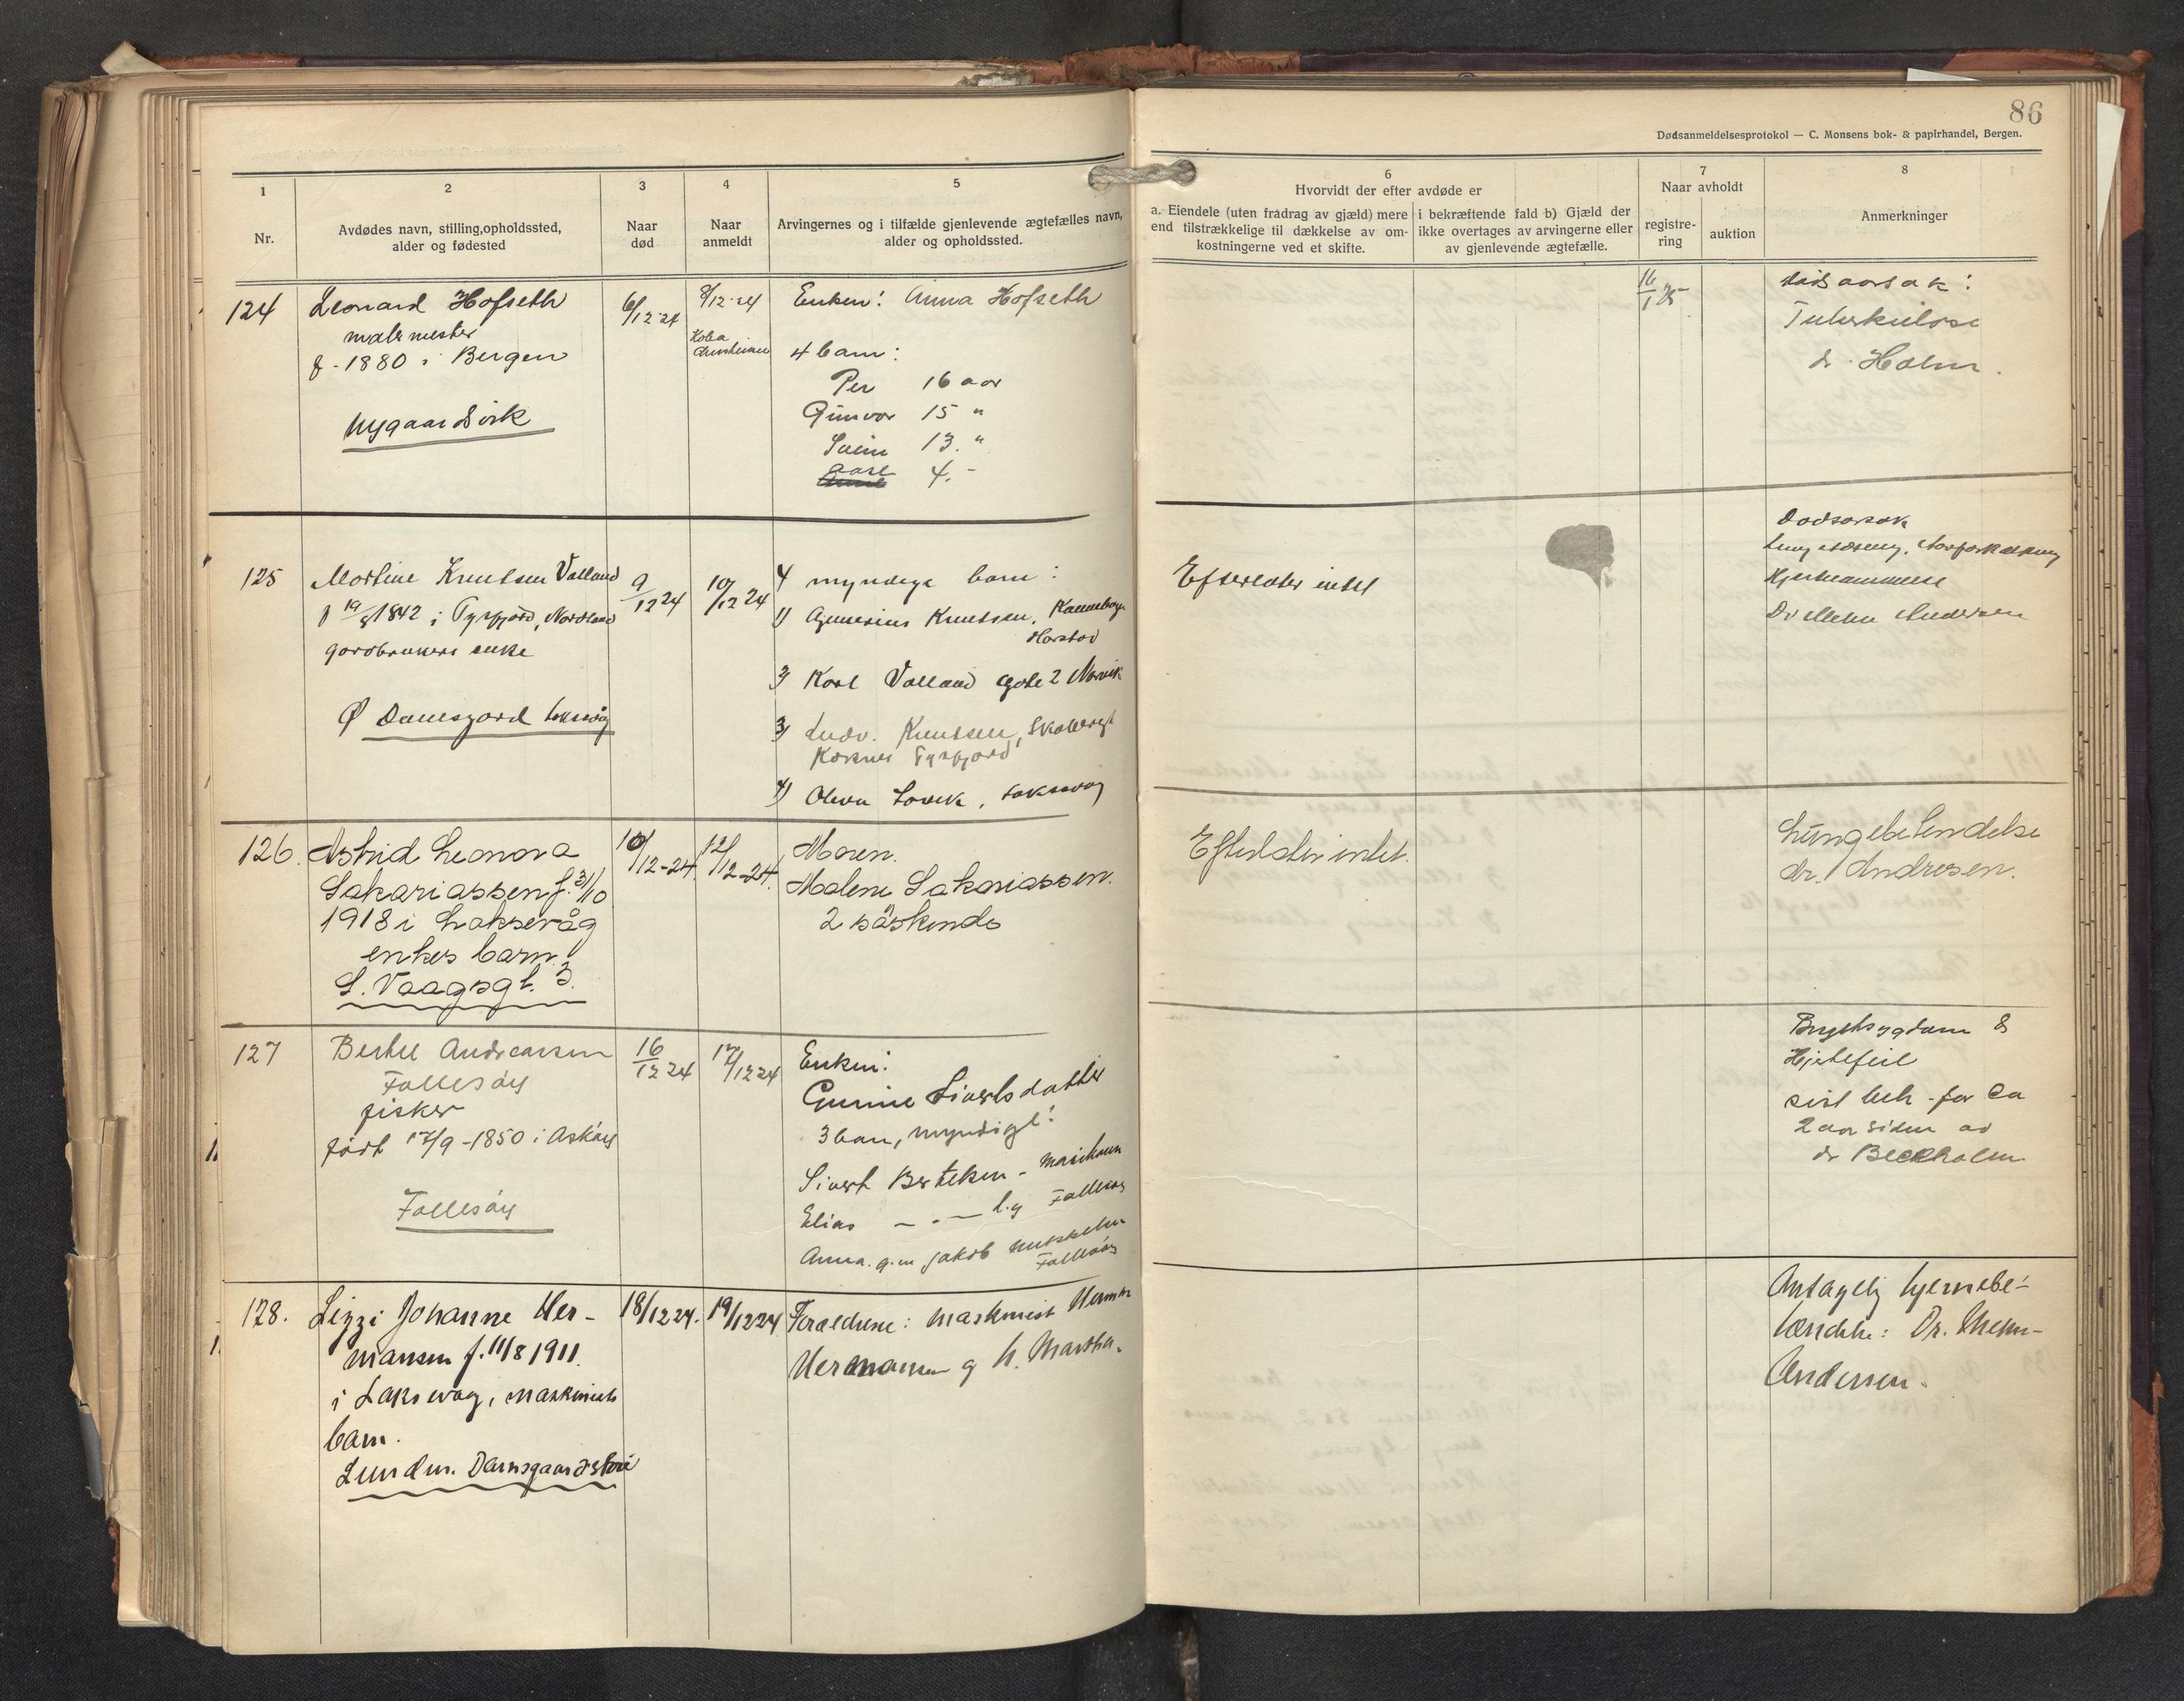 86
Dødsanmeldelsesprotokol — C. Monsens bok- & papirhandel, Bergen.
1
2
3
4
5
6
7
8
Nr.
Avdødes navn, stilling, opholdssted,
alder og fødested
Naar
død
Naar
anmeldt
Arvingernes og i tilfælde gjenlevende ægtefælles navn,
alder og opholdssted.
Hvorvidt der efter avdøde er
a. Eiendele (uten fradrag av gjæld) mere
end tilstrækkelige til dækkelse av om-
kostningerne ved et skifte.
i bekræftende fald b) Gjæld der
ikke overtages av arvingerne eller
av gjenlevende ægtefælle.
Naar avholdt
registre-
ring
auktion
Anmerkninger
124
Leonard Hofseth
malermester
f. 1880 i Bergen
Nygaardsvik
6/12-24
8/12-24
Enken: Anna Hofseth
4 barn:
Per 16 aar
Gunvor 15 "
Svein 13. "
Aase 4. -
16/1 25
dødsaarsak:
Tuberkulose
dr. Holm.
125
Martine Knutsen Valland
f 19/8 1842 i Tysfjord, Nordland
gardbrukers enke
Ø Damsgard Laksevåg
9/12 24
10/12 24
4 myndige barn:
1) Knutsen, Kannebogn
Harstad
2) Karl Valland gate 2 Narvik
3) Ludv. Knutsen,
Korsnes Tysfjord
4) Olena Lovik, Laksevåg
Efterlater intet
Dødsorsak
Hjertelammelse
Dr Andersen
126.
Astrid Leonora
Sakariassen f. 3/10
1918 i Laksevåg
enkes barn.
S. Vaagsgt. 3.
10/12-24.
12/12-24.
Moren.
Malene Sakariassen.
2 søskende
Efterlater intet.
Lungebetendelse
dr. Andresen.
127
Bertel Andreassen
Follesøy
fisker
født 17/9-1850 i Askøy
Follesøy
16/12 24
17/12 24
Enken:
Gurine Sivertsdatter
3 barn, myndige:
Sivert Bertelsen -
Elias — " — l.g Follesøy
Anna. g.m Jakob Mikkelsen
Follesøy
Brystsygdom &
Hjertefeil
sist beh. for ca
2 aar siden av
dr Beckholm
128.
Lizzi Johanne Her-
mansen f. 11/8 1911.
i Laksevag, maskinists
barn.
Lunden. Damsgaard store
18/12 24.
19/12 24
Forældrene: maskinist Herman
Hermansen og h. Martha.
Antagelig hjernebe-
tændelse: Dr.
Andersen.